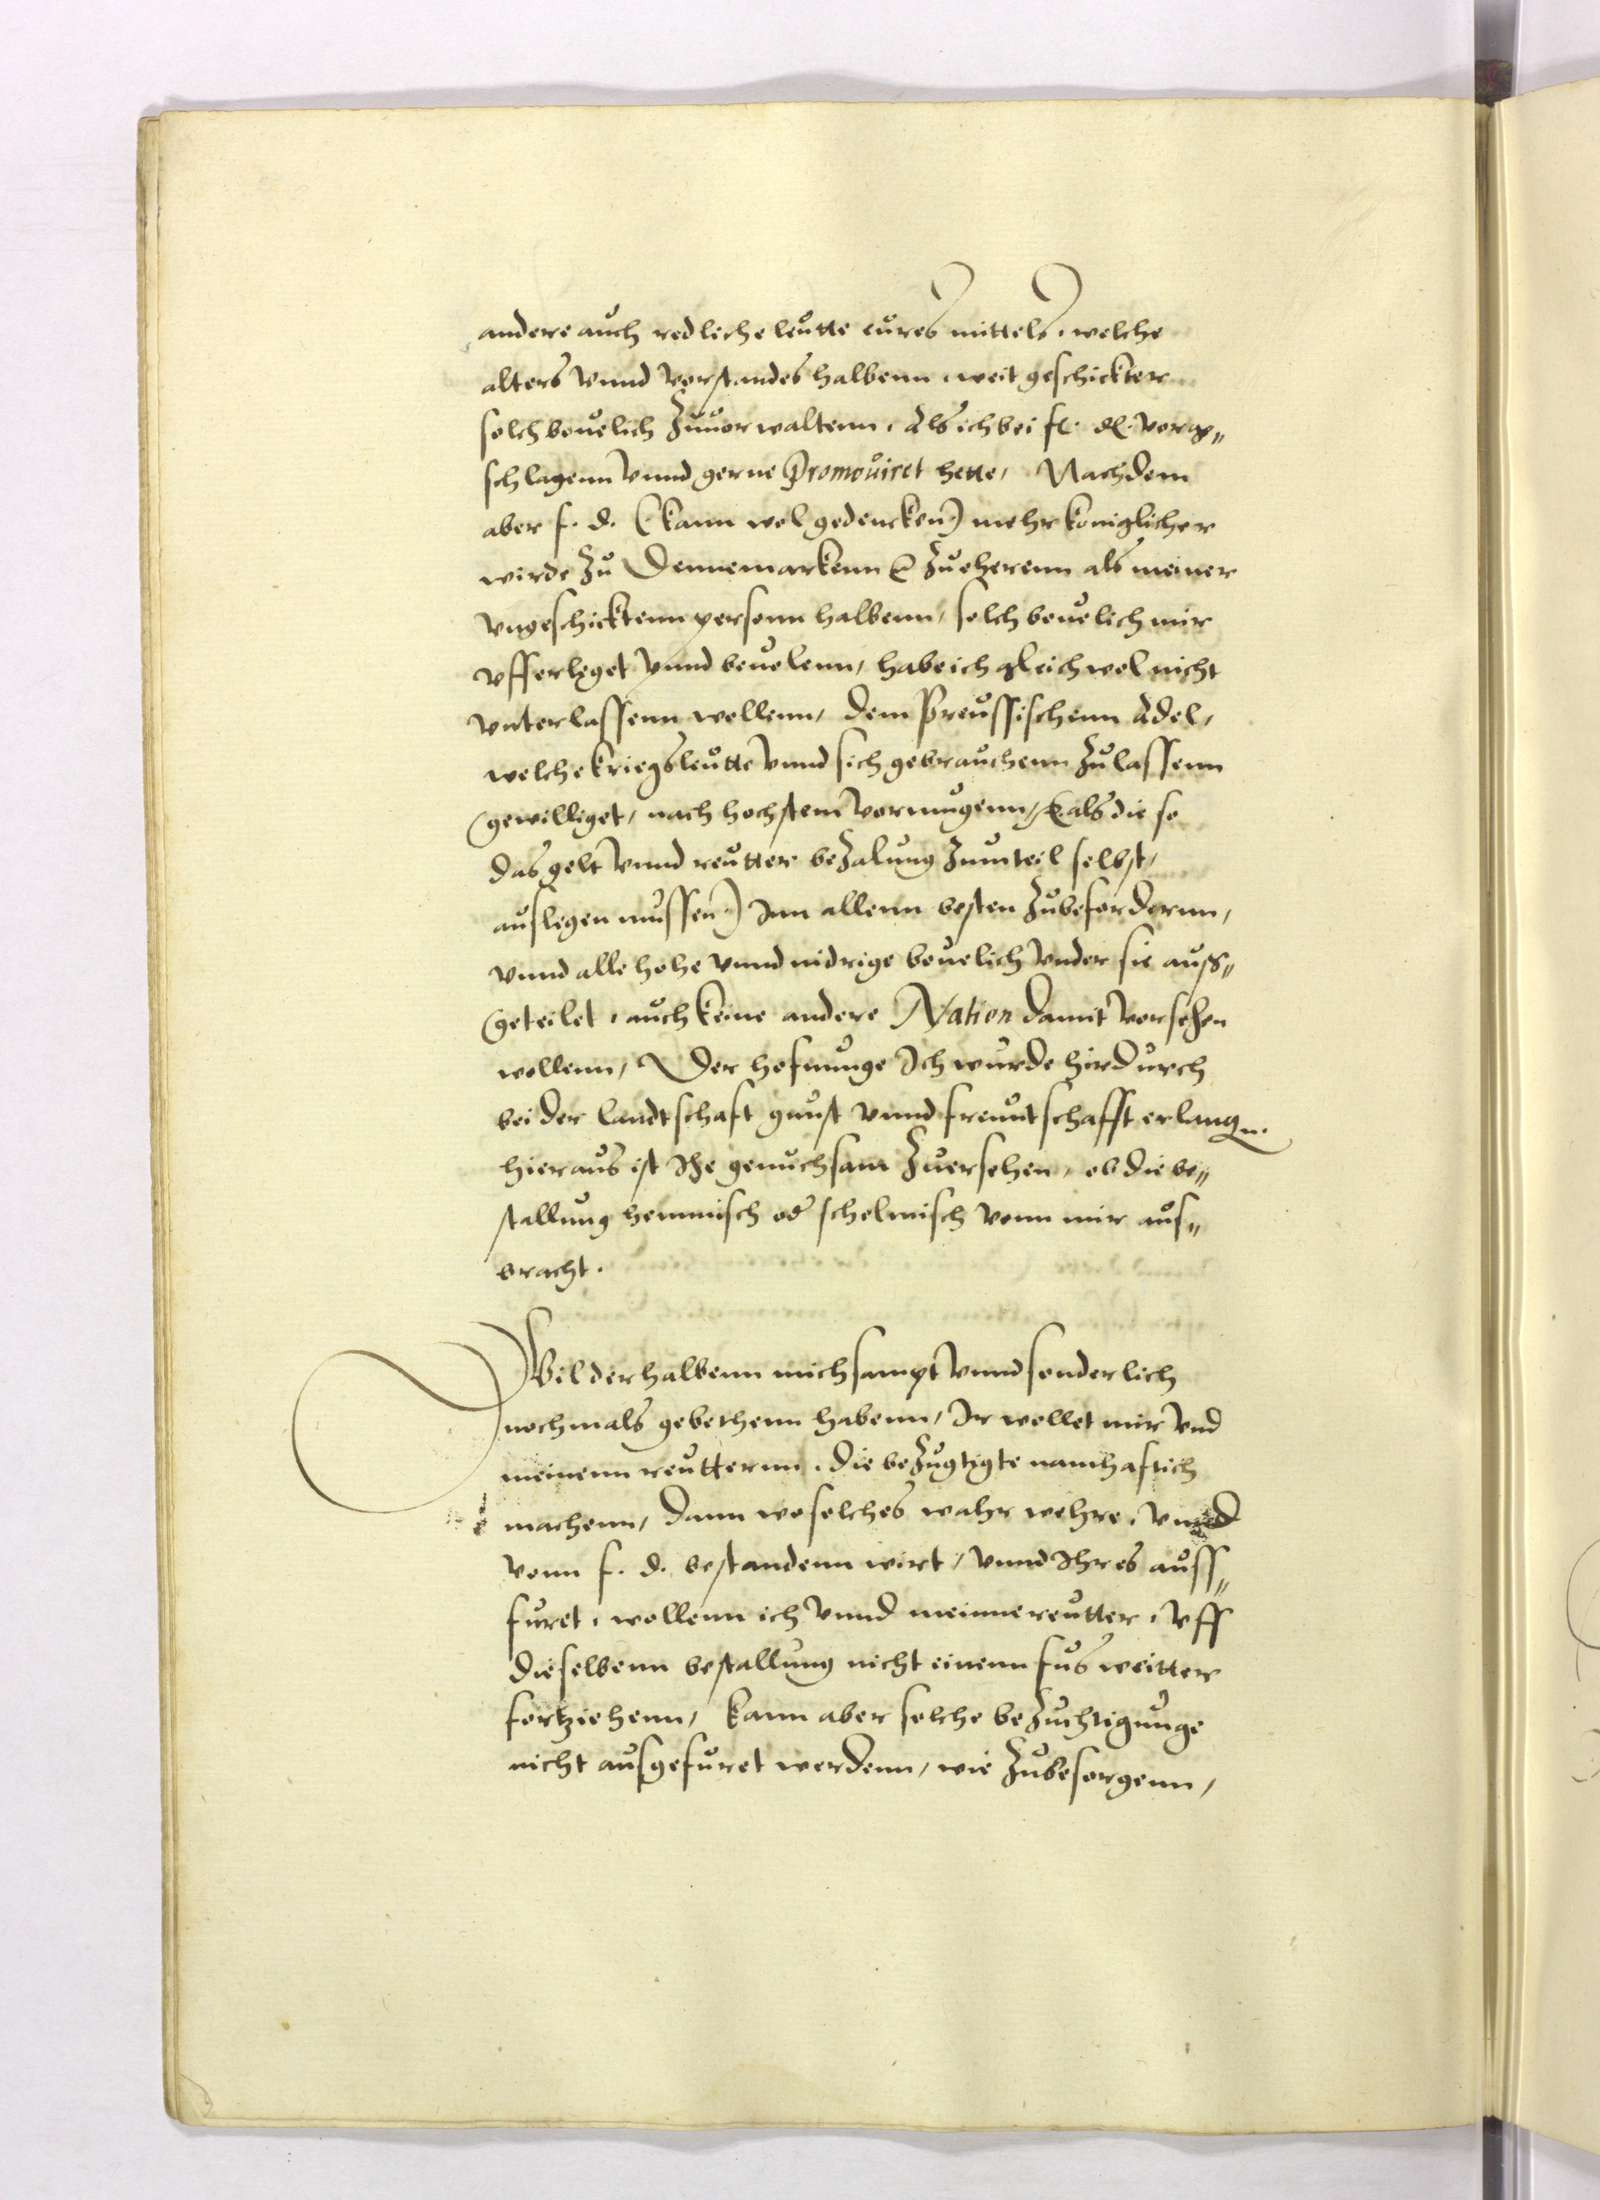 andere auch redliche leutte eures mittels, welche
alters vnnd verstandes halbenn, weit geschickter
solch beuelich zuuorwaltenn, Als ich bei fl. dl. vorge„
schlagenn vnnd gerne Promouiret hette, Nachdem
aber f. d. (kann wol gedencken) mehr koniglicher
wirde zu Dennemarkenn zueherenn als meiner
vngeschicktenn personn halbenn, solch beuelich mir
vfferleget vnnd beuolenn, habe ich gleichwol nicht
vnterlassenn wollenn, dem Preussischenn Adel,
welche kriegsleutte vnnd sich gebrauchenn zulassenn
gewilliget, nach hochstem vormugenn, (als die so
das gelt vnnd reutter bezalung zumteil selbst,
auslegen mussen) Inn allenn besten zubeforderenn,
vnnd alle hohe vnnd nidrige beuelich vnder sie auss„
geteilet, auch keine andere Nation damit versehen
wollenn, Der hofnunge Ich wurde hirdurch
bei der landtschaft gunst vnnd freuntschafft erlangen.
hieraus ist Ihe genuchsam zuersehen, ob die be„
stallung hemmisch od schelmisch vonn mir aus„
bracht.
Wil derhalbenn mich sampt vnnd sonderlich
nochmals gebethenn habenn, Ir wollet mir vnd
meinenn reutternn, die bezugtigte namhaftich
machenn, dann wo solches wahr wehre, vnnd
vonn f. d. bestandenn wirt, vnnd Ihr es auss„
furet, wollenn ich vnnd meinne reutter, vff
dieselbenn bestallung nicht einenn fus weitter
fortziehenn, kann aber solche bezuchtigunge
nicht ausgefuret werdenn, wie zubesorgenn,